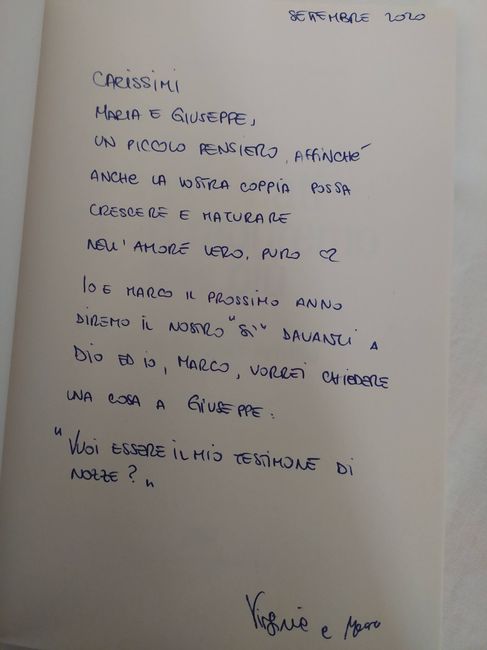 SETTEMBRE 2020
CARISSIMI
MARIA E GIUSEPPE,
UN PICCOLO PENSIERO, AFFINCHÉ
ANCHE LA VOSTRA COPPIA POSSA
CRESCERE E MATURARE
NELL'AMORE VERO, PURO ♡
IO E MARCO IL PROSSIMO ANNO
DIREMO IL NOSTRO "SÌ" DAVANTI A
DIO ED IO, MARCO, VORREI CHIEDERE
UNA COSA A GIUSEPPE:
"VUOI ESSERE IL MIO TESTIMONE DI
NOZZE?"
Virginie e Marco